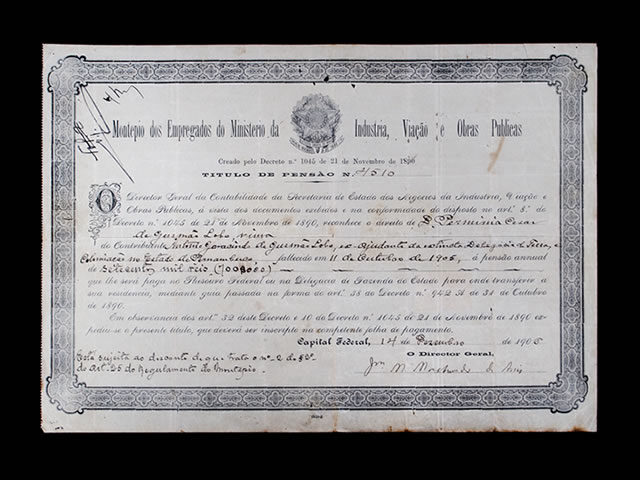 Montepio dos Empregados do Ministerio da Industria, Viação e Obras Publicas
Creado pelo Decreto n.º 1045 de 21 de Novembro de 1890
TITULO DE PENSÃO N.º 1510
O Director Geral da Contabilidade da Secretaria de Estado dos Negocios da Industria, Viação e
Obras Publicas, á vista dos documentos exibidos e na conformidade do disposto no art.º 8.º do
Decreto n.º 1045 de 21 de Novembro de 1890, reconhece o direito de D. Herminia Cesar
de Gusmão Lobo, viuva
do Contribuinte Antonio de Gusmão Lobo, ex-ajudante da extincta Delegação de Terras e
Colonisação no Estado de Pernambuco, fallecido em 11 de Outubro de 1905, á pensão annual
de Setecentos mil reis,
que lhe será paga no Thesouro Federal ou na Delegacia de Fazenda do Estado para onde transferir a
sua residencia, mediante guia passada na forma do art.º 38 do Decreto n.º 942 A de 31 de Outubro
de 1890.
Em observancia dos art.ºs 32 deste Decreto e 10 do Decreto n.º 1045 de 21 de Novembro de 1890 expediu-se
o presente titulo, que deverá ser inscripto na competente folha de pagamento.
Capital Federal, 14 de Dezembro de 1905
O Director Geral,
Está sujeita ao desconto de que trata o nº 2 do
do Art. 25 do Regulamento do Montepio.